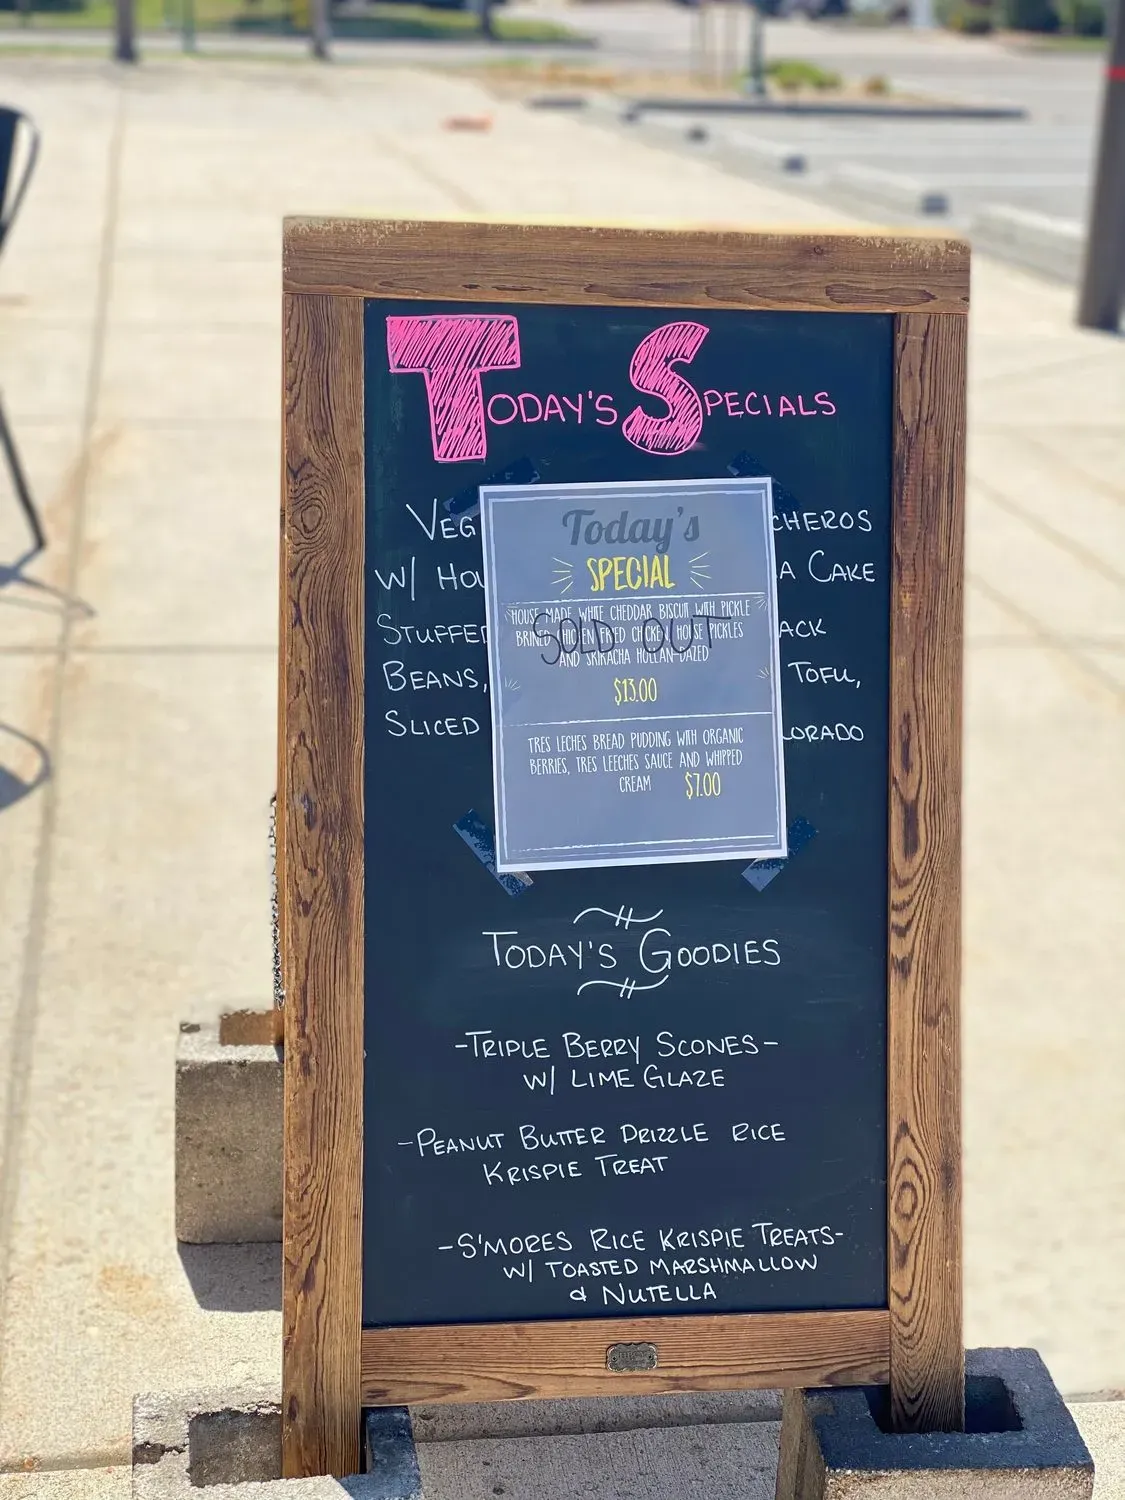 TODAY'S SPECIALS
VEG CHEROS
W/ HOU A CAKE
STUFFED ACK
BEANS, TOFU,
SLICED LORADO
Today's
SPECIAL
HOUSE MADE WHITE CHEDDAR BISCUIT WITH PICKLE
BRINED CHICKEN FRIED CHICKEN, HOUSE PICKLES
AND SRIRACHA HOLLAN-DAZED
SOLD OUT
$13.00
TRES LECHES BREAD PUDDING WITH ORGANIC
BERRIES, TRES LEECHES SAUCE AND WHIPPED
CREAM $7.00
TODAY'S GOODIES
-TRIPLE BERRY SCONES-
W/ LIME GLAZE
-PEANUT BUTTER DRIZZLE RICE
KRISPIE TREAT
-S'MORES RICE KRISPIE TREATS-
W/ TOASTED MARSHMALLOW
& NUTELLA